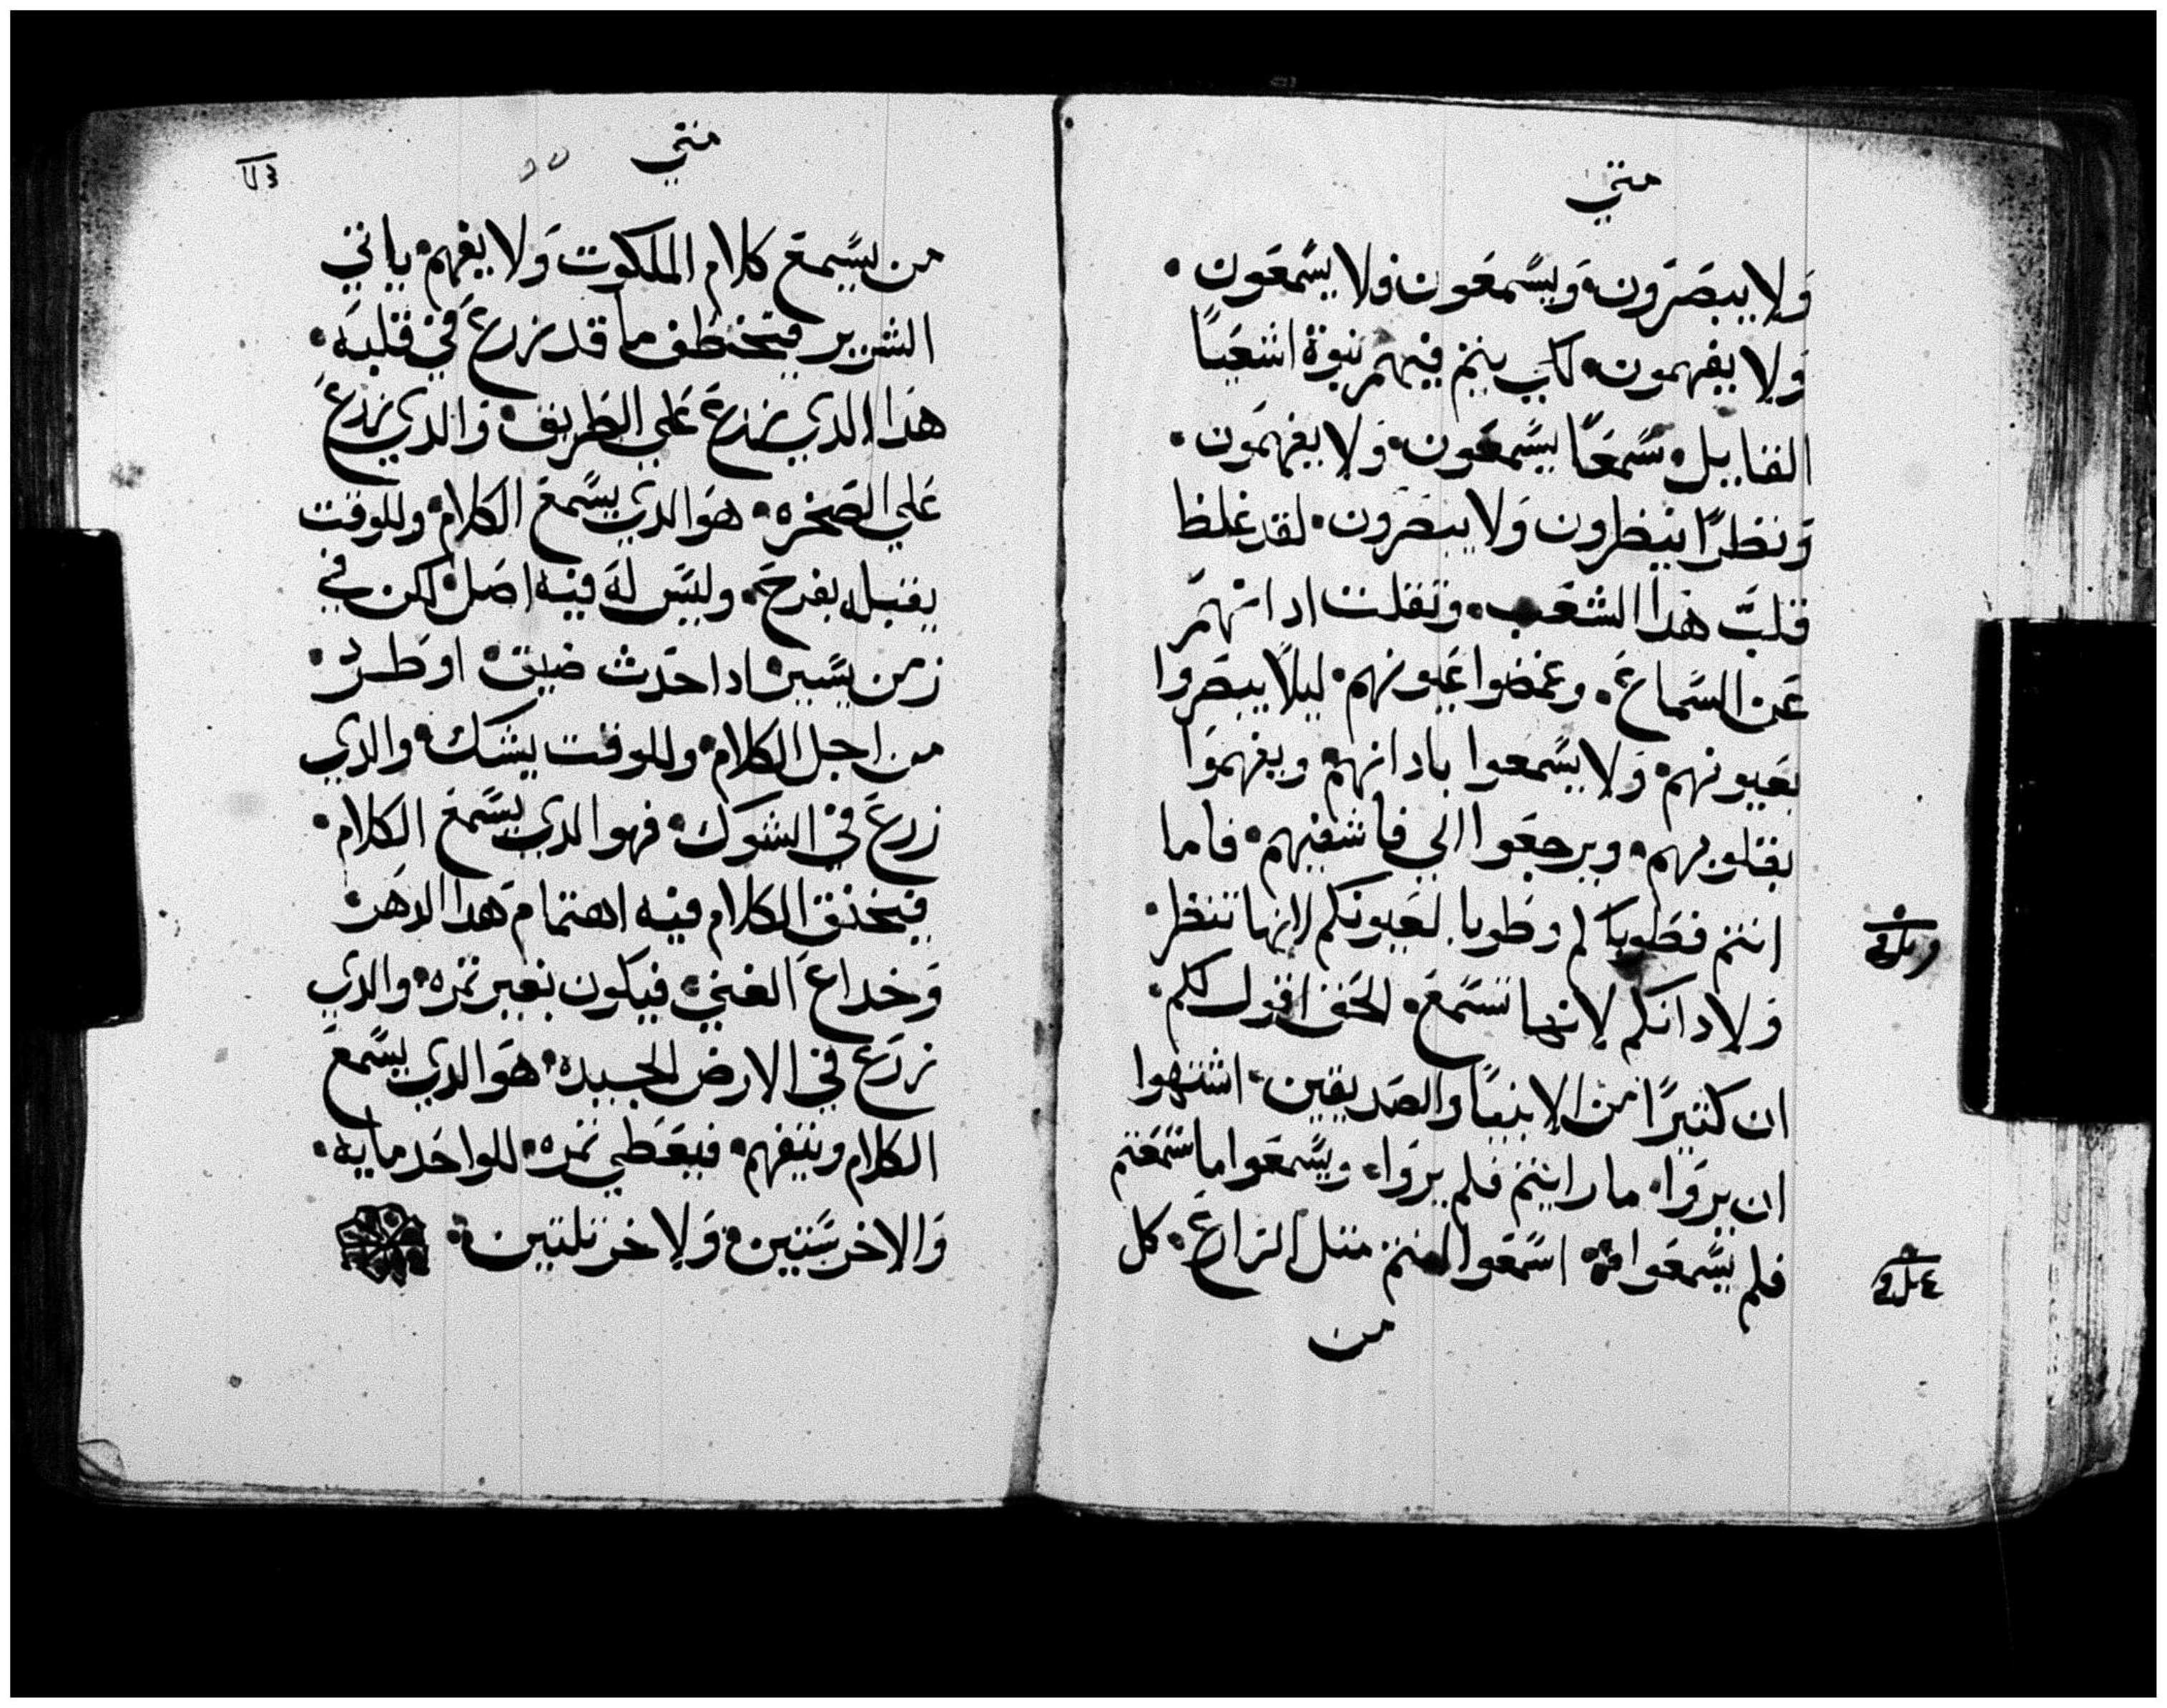 متي
ولا يبصرون. ويسمعون ولا يسمعون.
ولا يفهمون. لكي يتم فيهم نبوة اشعيا
القايل. سمعًا يسمعون. ولا يفهمون.
ونظرًا ينظرون ولا يبصرون. لقد غلظ
قلب هدا الشعب. وتقلت ادانهم
عن السماع. وغمضوا عيونهم. ليلا يبصروا
بعيونهم. ولا يسمعوا بادانهم. ويفهموا
بقلوبهم. ويرجعوا الي فاشفيهم. فاما
انتم فطوباكم وطوبا لعيونكم لانها تنظر.
ولادانكم لانها تسمع. الحق اقول لكم.
ان كتيرًا من الانبيا والصديقين. اشتهوا
ان يروا. ما رايتم فلم يروا. ويسمعوا ما سمعتم
فلم يسمعوا. اسمعوا انتم متل الزارع. كل
من
متي
من يسمع كلام الملكوت ولا يفهم. ياتي
الشرير فيختطف ما قد زرع في قلبه.
هدا الدي زرع علي الطريق. والدي زرع
علي الصخره. هو الدي يسمع الكلام. وللوقت
يقبله بفرح. وليس له فيه اصل. لكن في
زمن يسير. ادا حدث ضيق. او طرد.
من اجل الكلام. وللوقت يشك. والدي
زرع في الشوك. فهو الدي يسمع الكلام.
فيخنق الكلام فيه اهتمام هدا الدهر.
وخداع الغني. فيكون بغير تمره. والدي
زرع في الارض الجيده. هو الدي يسمع
الكلام ويتفهم. فيعطي تمره. للواحد مايه.
والاخر ستين. ولاخر تلتين.